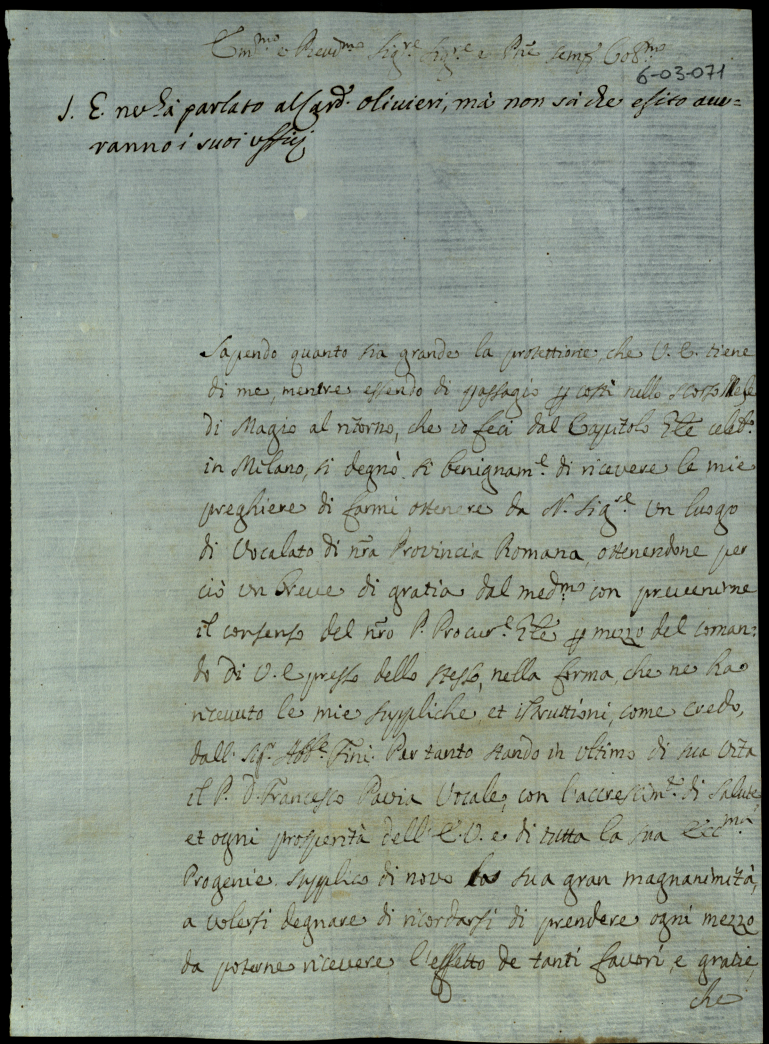 Em.mo e Reud.mo Sig.re Sig.re e Pñe semp. Coll.mo
6-03-071
S. E. ne hà parlato al Card. Olivieri, mà non sà che esito aue=
ranno i suoi ufficij
Sapendo quanto sia grande la protettione, che V. E. tiene
di me, mentre essendo di passagio p costì nello scorso Mese
di Magio al ritorno, che io feci dal Capitolo Gñle celeb.o
in Milano, si degnò si benignam.e di riceuere le mie
preghiere di farmi ottenere da N. Sig.re un luogo
di Vocalato di nr̃a Prouincia Romana, ottenendone per
ciò un Breue di gratia dal med.mo con preuenirne
il consenso del nr̃o P. Procur.e Gñle p mezzo del coman=
do di V. E presso dello stesso, nella forma, che ne ha
riceuuto le mie suppliche, et istruttioni, come credo,
dall. Sig. Abb.e Fini. Per tanto stando in ultimo di sua uita
il P. D. Francesco Pauia Vocale, con l'accrescim.to di salute,
et ogni prosperità dell' E. V. e di tutta la sua Ecc.ma
Progenie supplico di nouo la sua gran magnanimità,
a uolersi degnare di ricordarsi di prendere ogni mezzo
da poterne riceuere l'effetto de tanti fauori, e gratie,
che